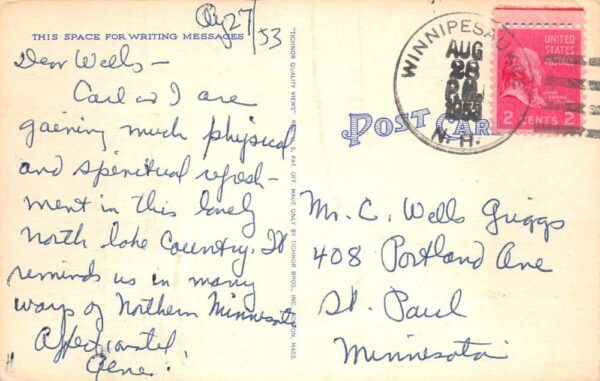 Aug 27/53
THIS SPACE FOR WRITING MESSAGES
Dear Wells—
Carl & I are
gaining much physical
and spiritual refresh-
ment in this lovely
North lake Country. It
reminds us in many
ways of Northern Minnesota
Affectionately
Gene
"TICHNOR QUALITY VIEWS" REG. U. S. PAT. OFF. MADE ONLY BY TICHNOR BROS., INC., BOSTON, MASS.
POST CARD
WINNIPESAUKEE
AUG
28
P.M.
1953
N. H.
UNITED
STATES
POSTAGE
JOHN ADAMS
2 CENTS 2
Mr. C. Wells Griggs
408 Portland Ave
St. Paul
Minnesota